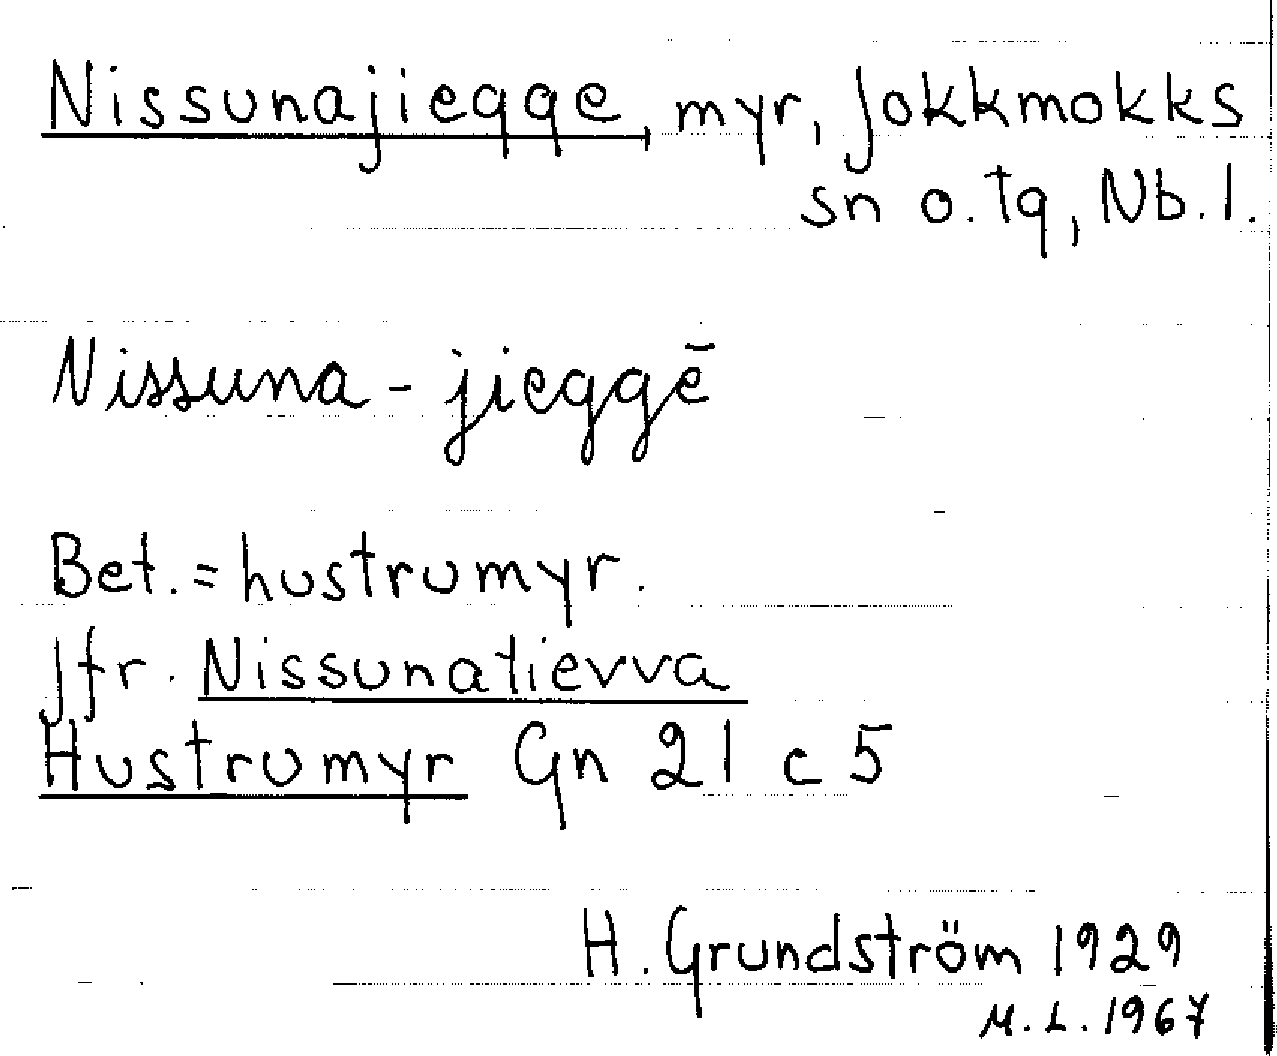 Nissunajiegge, myr, Jokkmokks
sn o. tg, Nb. l.
Nissuna-jieggē
Bet. = hustrumyr.
Jfr. Nissunatievva
Hustrumyr Gn 21 c 5
H. Grundström 1929
M. L. 1967